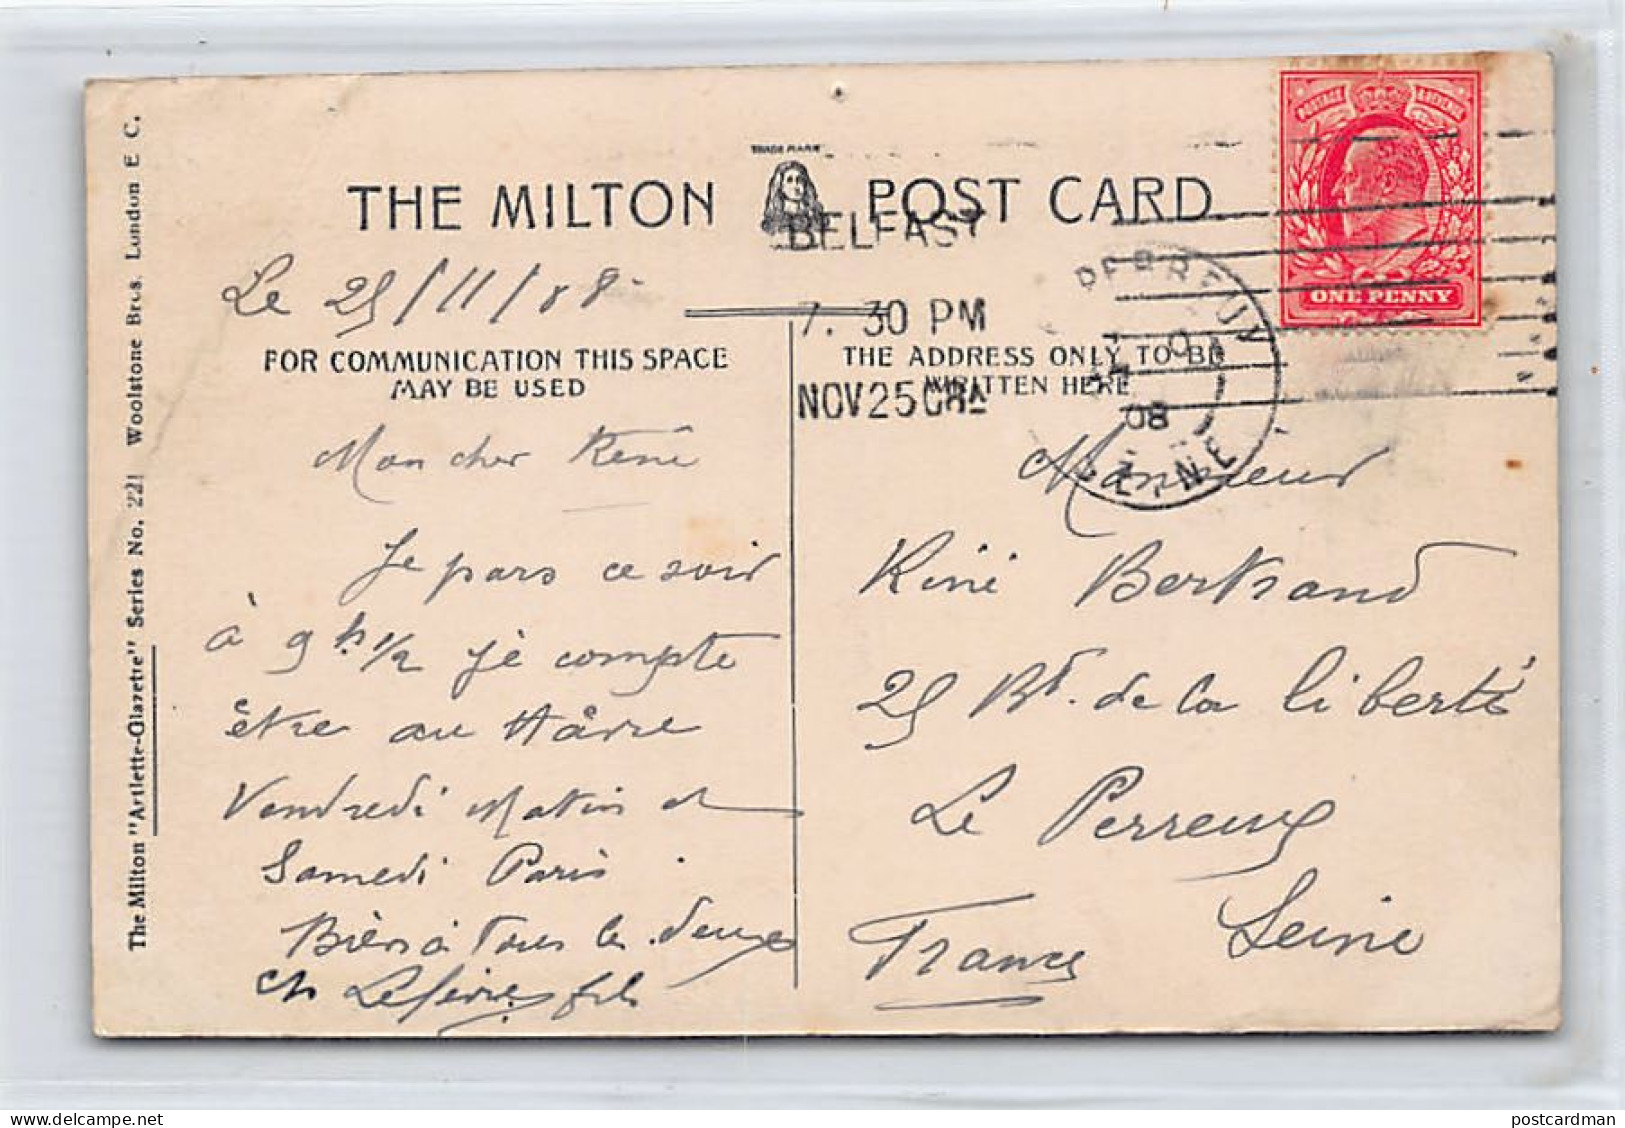 The Milton "Artlette-Glazette" Series No. 221 Woolstone Bros. London E C.
TRADE MARK
THE MILTON POST CARD
BELFAST
7. 30 PM
NOV 25
POSTAGE REVENUE
ONE PENNY
PERREUX
08
SEINE
Le 25/11/08
FOR COMMUNICATION THIS SPACE
MAY BE USED
Mon cher René
Je pars ce soir
à 9h 1/2 je compte
être au Hâvre
Vendredi Matin et
Samedi Paris.
Bien à tous les deux
Ch Lefèvre fils
THE ADDRESS ONLY TO BE
WRITTEN HERE
Monsieur
René Bertrand
25 Bd. de la liberté
Le Perreux
Seine
France
postcardman